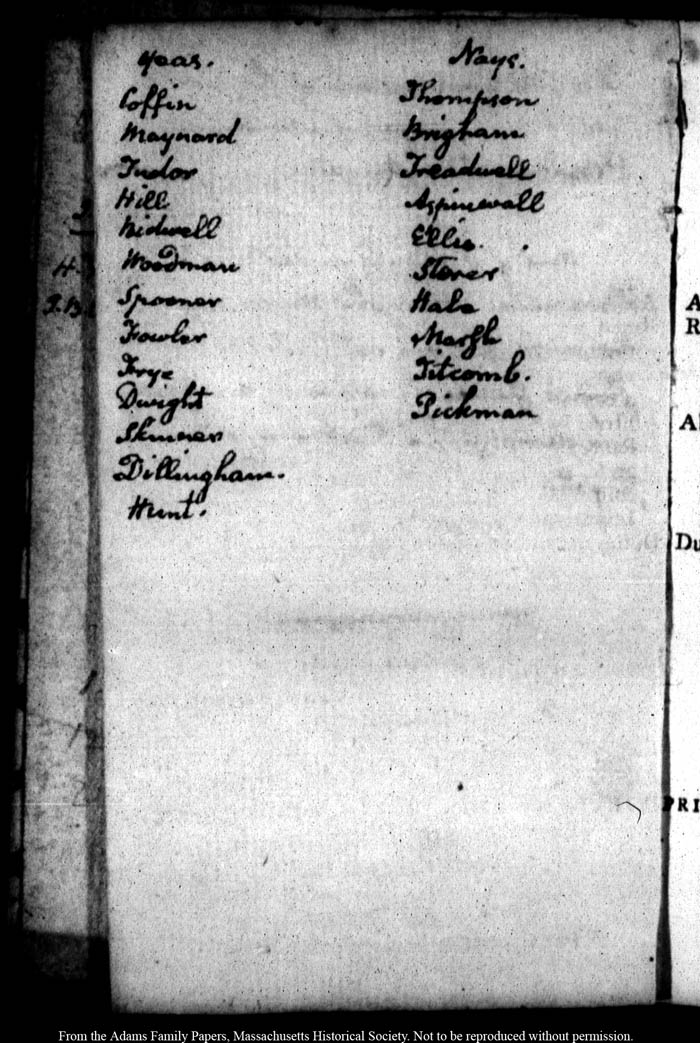 Yeas.
Coffin
Maynard
Tudor
Hill
Bidwell
Woodman
Spooner
Fowler
Frye
Dwight
Skinner
Dillingham.
Hunt.
Nays.
Thompson
Brigham
Treadwell
Aspinwall
Ellis.
Storer
Hale
Marsh
Titcomb.
Pickman
A
R
Du
PRI
From the Adams Family Papers, Massachusetts Historical Society. Not to be reproduced without permission.